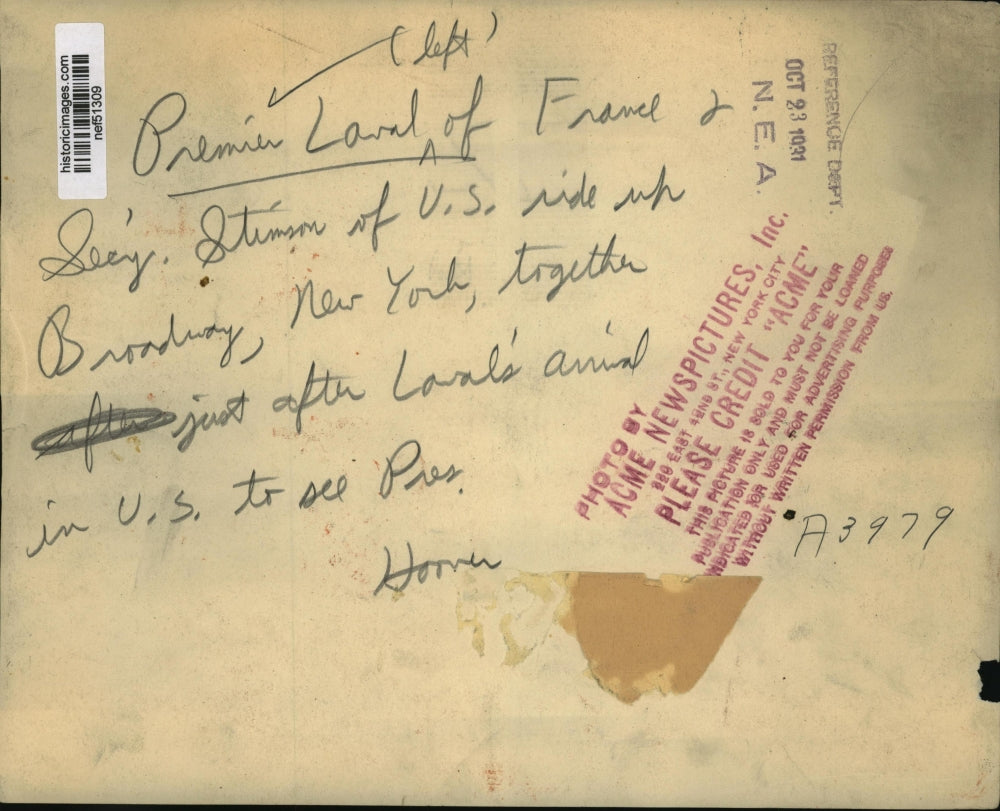 historicimages.com
nef51309
(left)
Premier Laval of France &
Sec'y. Stimson of U.S. ride up
Broadway, New York, together
after just after Laval's arrival
in U.S. to see Pres.
Hoover
REFERENCE DEPT.
OCT 23 1931
N. E. A.
PHOTO BY
ACME NEWSPICTURES, Inc.
220 EAST 42ND ST., NEW YORK CITY
PLEASE CREDIT "ACME"
THIS PICTURE IS SOLD TO YOU FOR YOUR
PUBLICATION ONLY AND MUST NOT BE LOANED
INDICATED OR USED FOR ADVERTISING PURPOSES
WITHOUT WRITTEN PERMISSION FROM US.
A3979